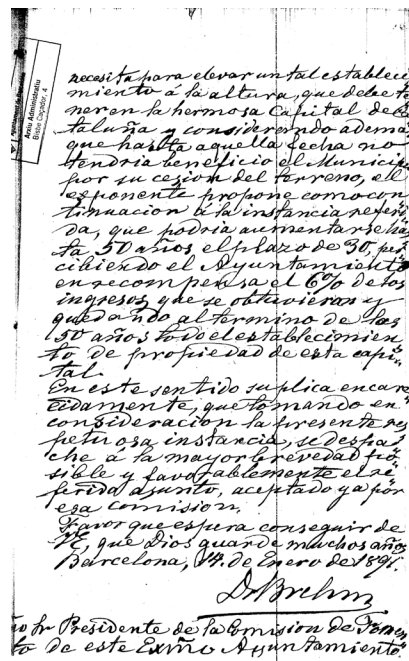 Arxiu Administratiu
Bisbe Caçador, 4
necesita para elevar un tal estableci
miento á la altura, que debe te
ner en la hermosa Capital de Ca
taluña y considerando ademá
que hasta aquella fecha no
tendria beneficio el Municip
por su cesion del terreno, el
exponente propone como con
tinuacion á la instancia referi
da, que podria aumentarse has
ta 50 años el plazo de 30, per
cibiendo el Ayuntamiento
en recompensa el 6% de los
ingresos que se obtuvieran y
quedando al termino de los
50 años todo el establecimien
to de propiedad de esta capi
tal.
En este sentido suplica encare
cidamente, que tomando en
consideracion la presente res
petuosa instancia, se despa
che á la mayor brevedad po
sible y favorablemente el re
ferido asunto, aceptado ya por
esa comision.
Favor que espera conseguir de
VE, que Dios guarde muchos años
Barcelona, 14 de Enero de 1891.
Dr Brehm
Sr Presidente de la Comision de Fomen
to de este Exmo Ayuntamiento.